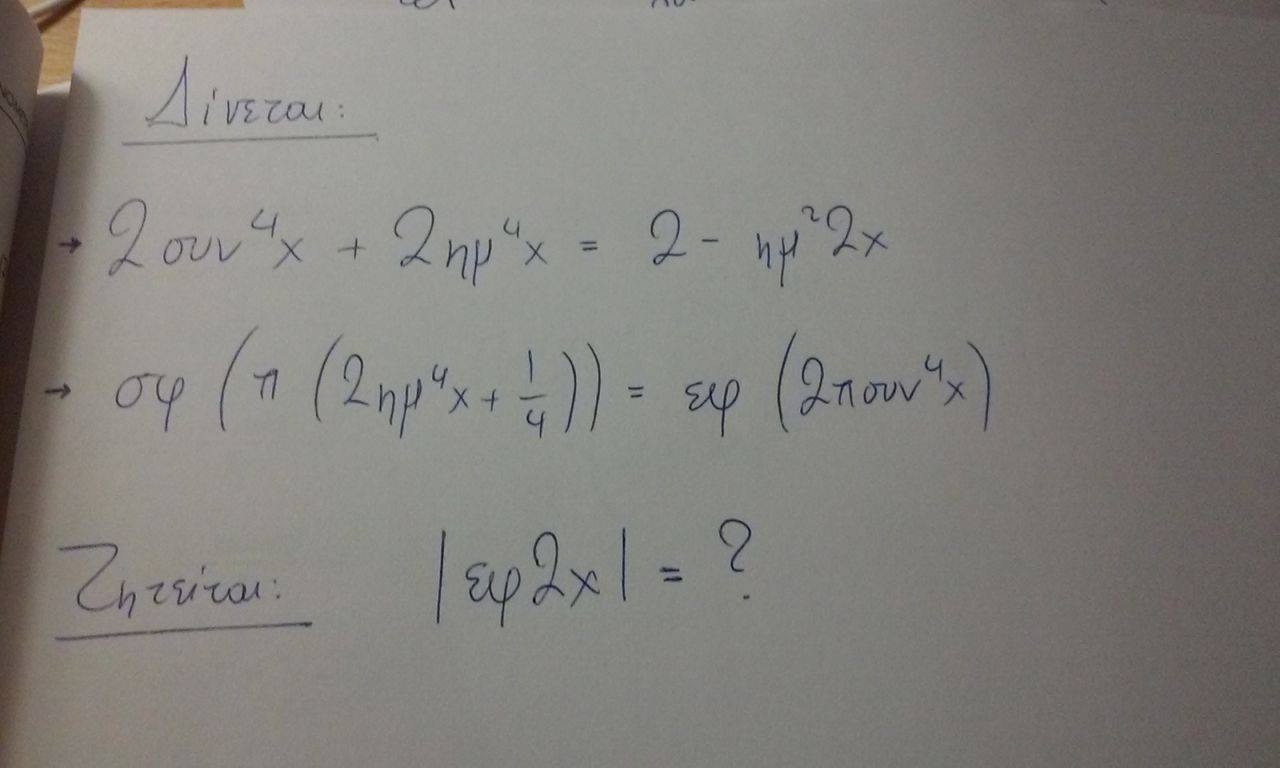 Δίνεται:
→ 2συν⁴x + 2ημ⁴x = 2 - ημ²2x
→ σφ (π (2ημ⁴x + 1/4)) = εφ (2πσυν⁴x)
Ζητείται: |εφ2x| = ?